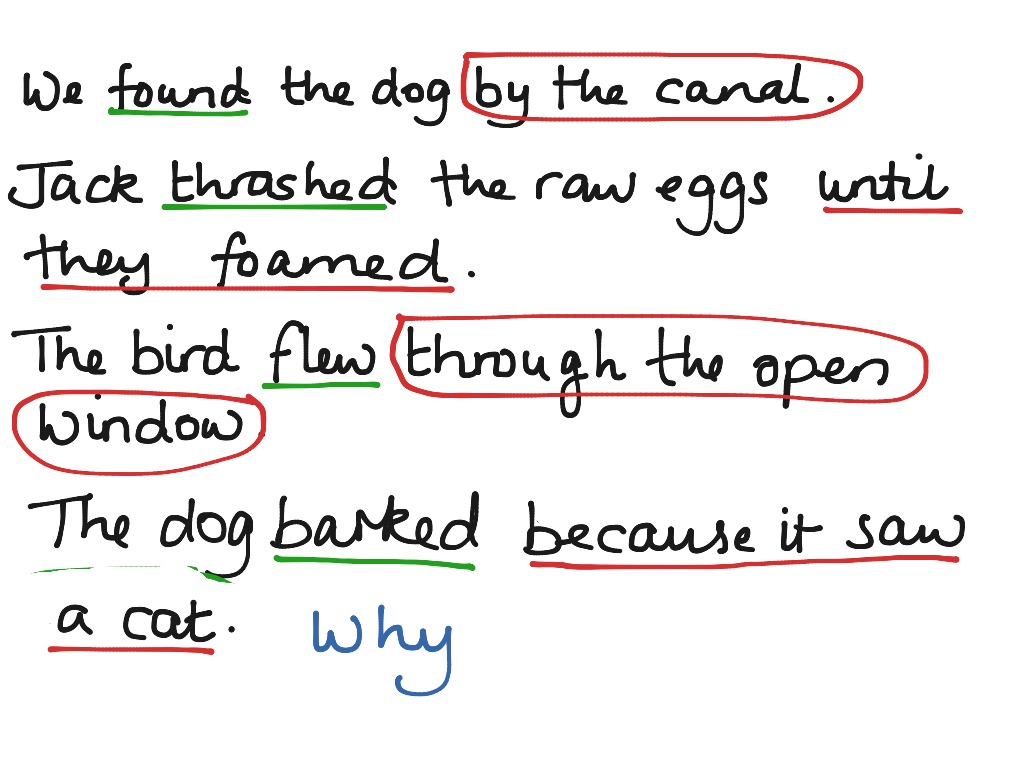 We found the dog by the canal.
Jack thrashed the raw eggs until
they foamed.
The bird flew through the open
window
The dog barked because it saw
a cat. Why